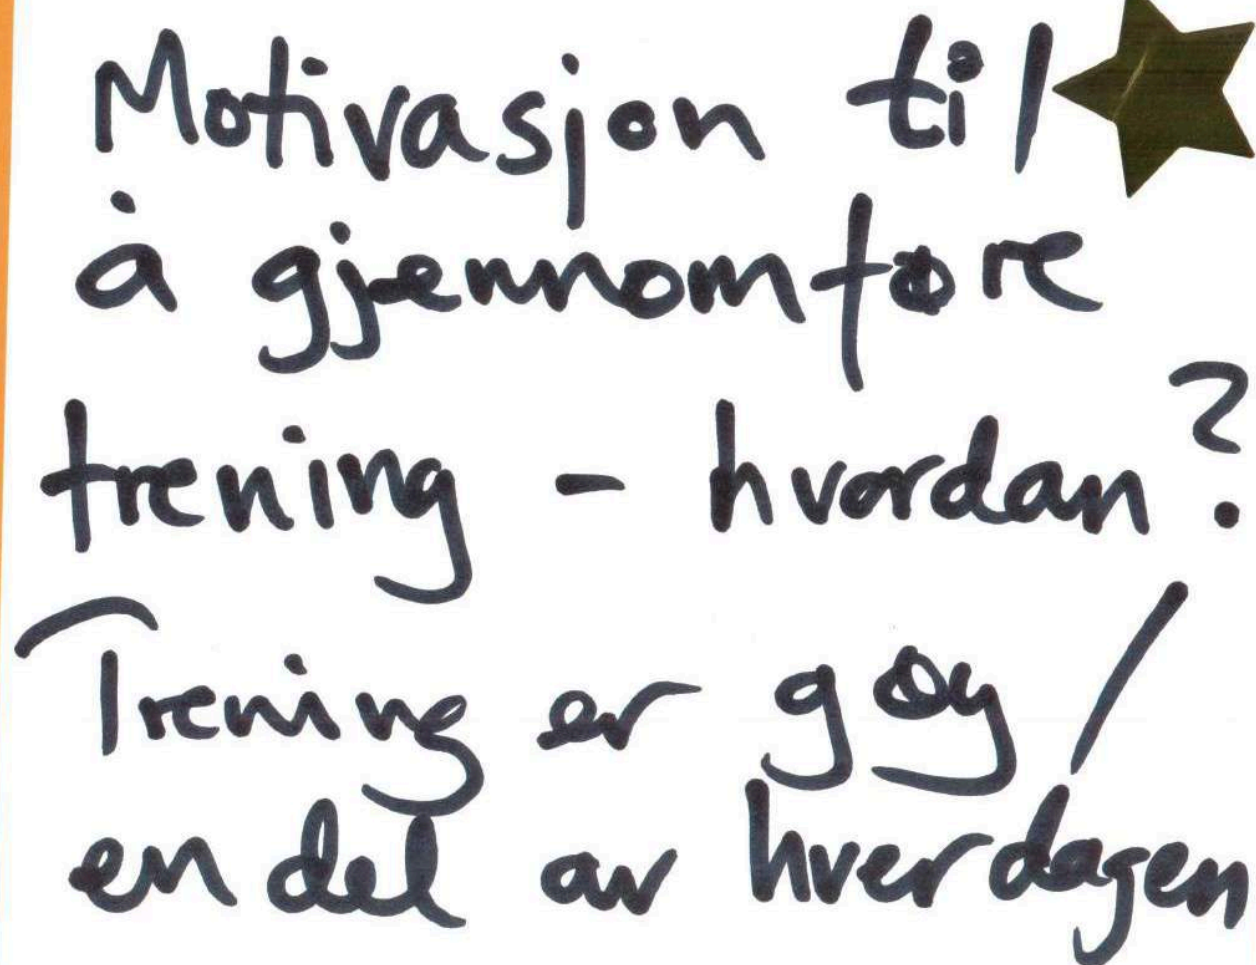 Motivasjon til
å gjennomføre
trening - hvordan?
Trening er gøy /
en del av hverdagen